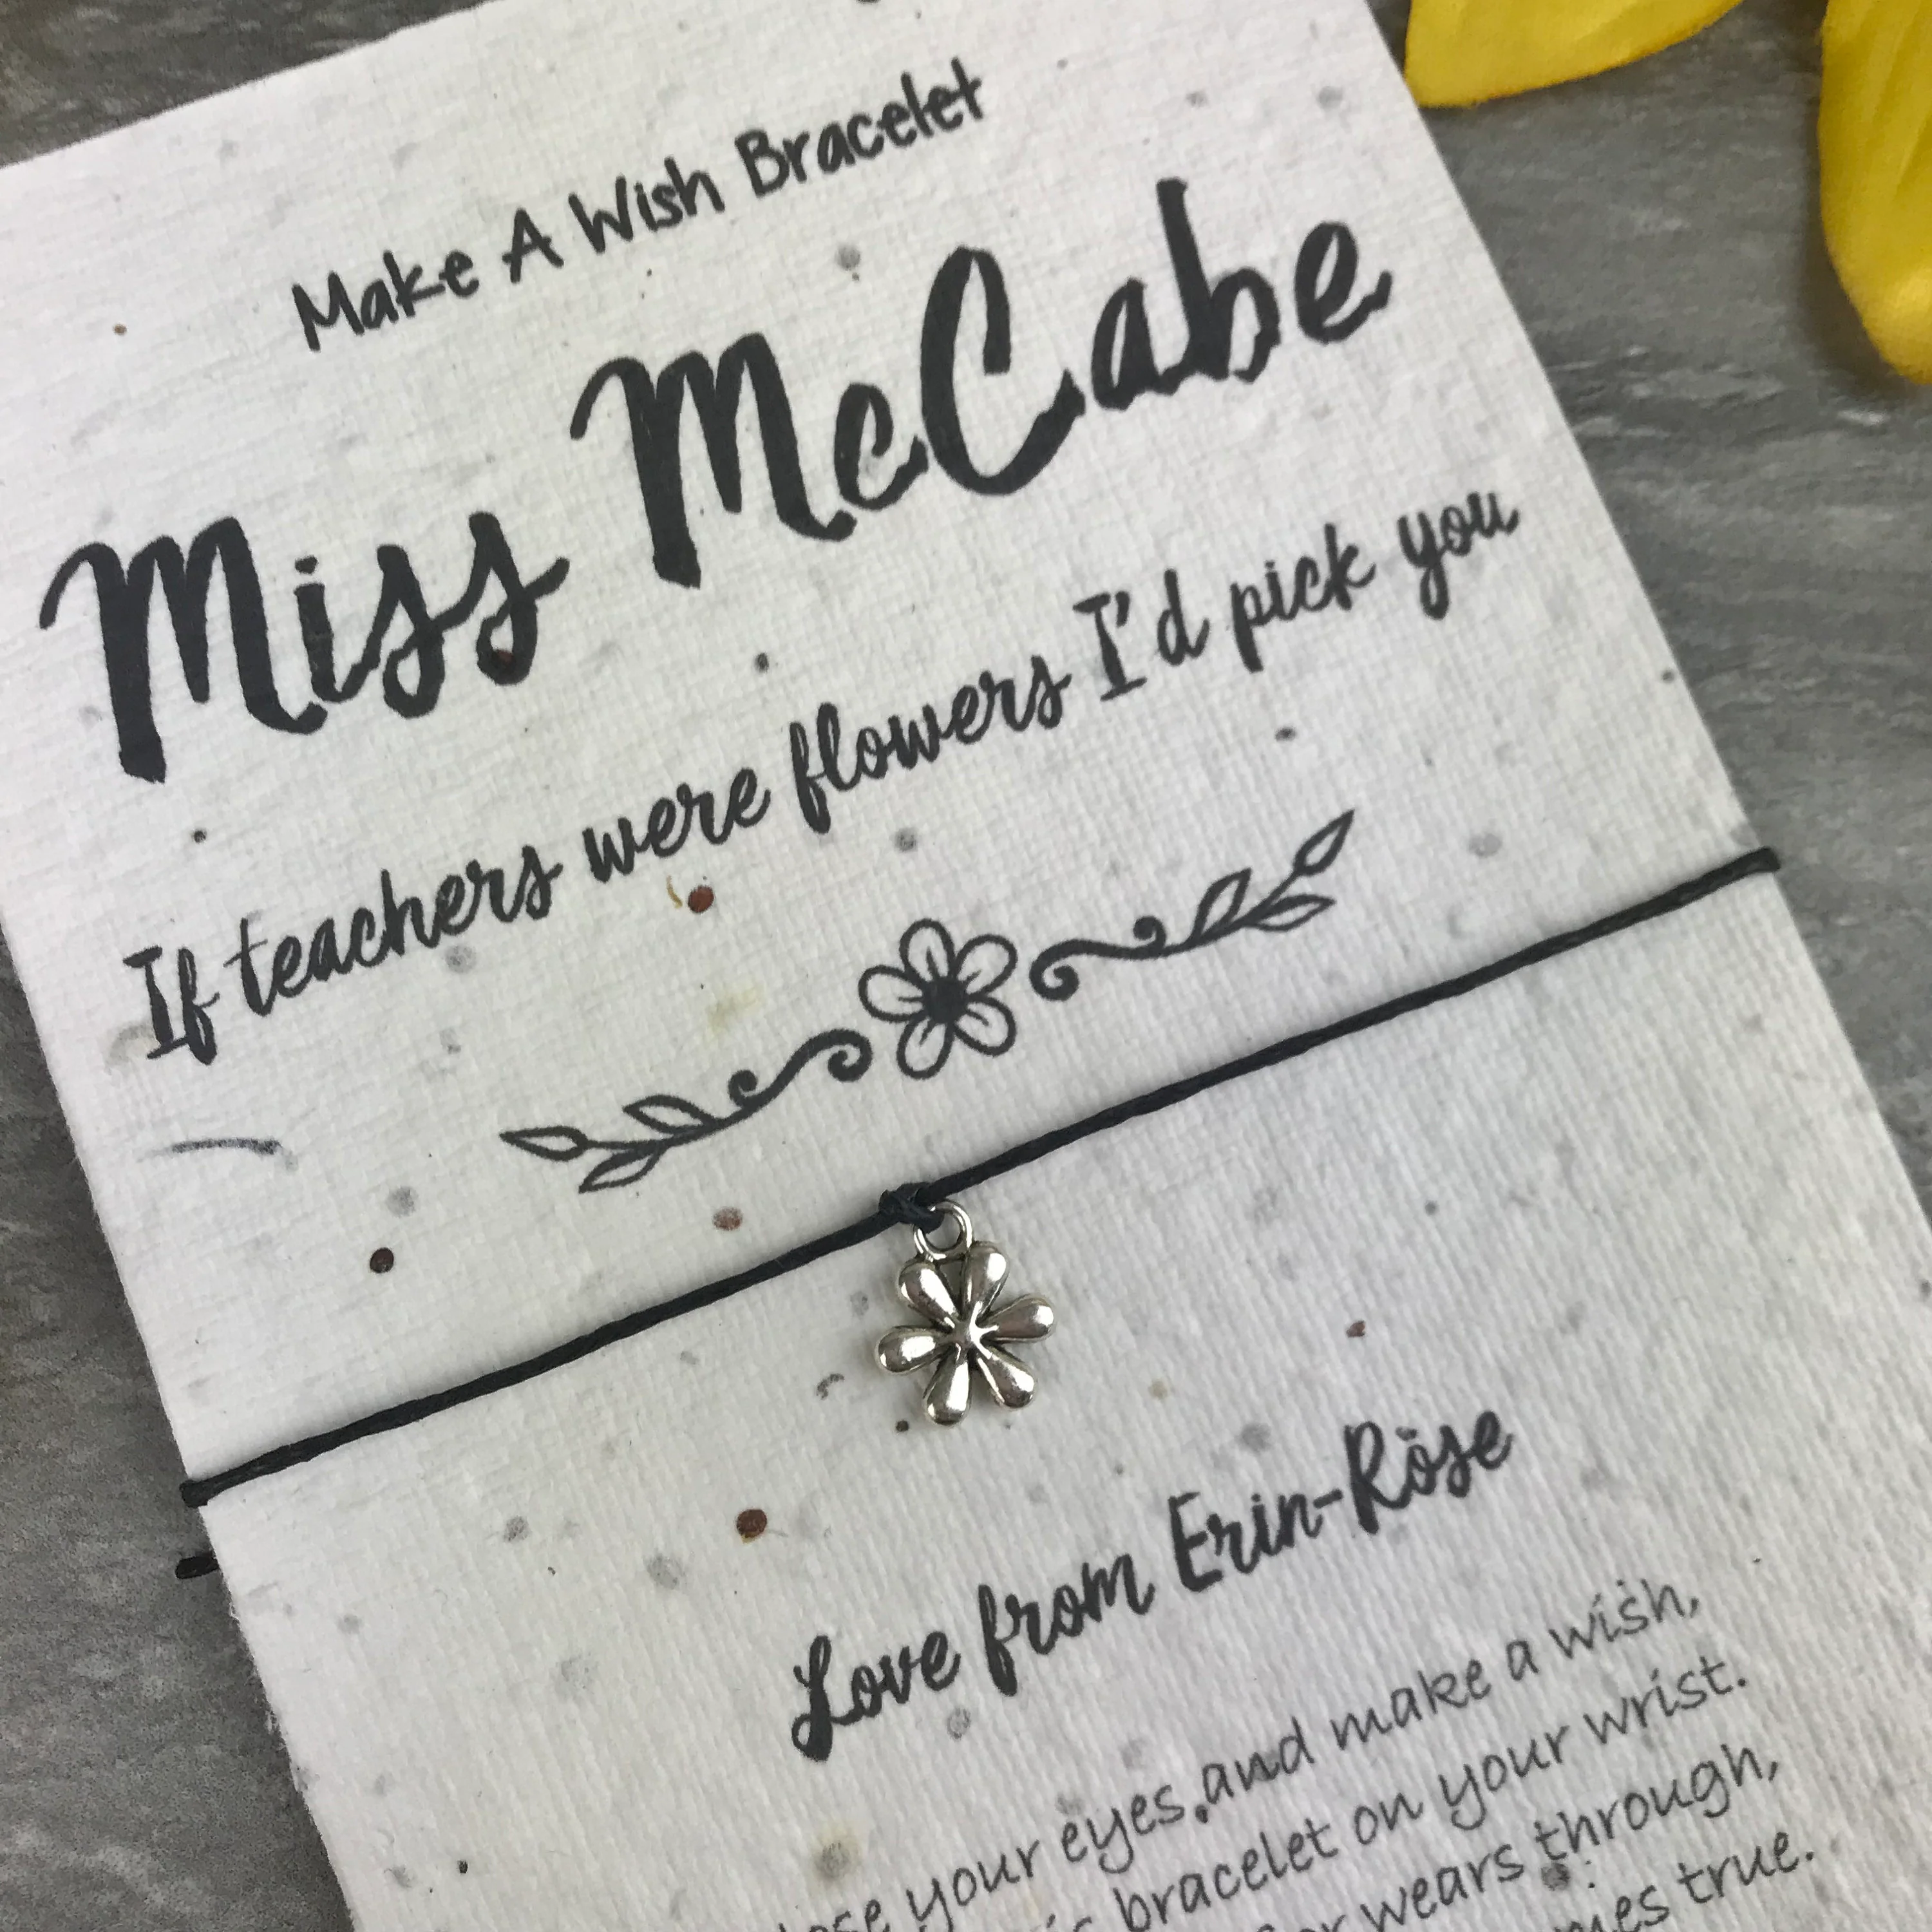 Make A Wish Bracelet
Miss McCabe
If teachers were flowers I'd pick you
Love from Erin-Rose
your eyes, and make a wish,
bracelet on your wrist.
wears through,
true.